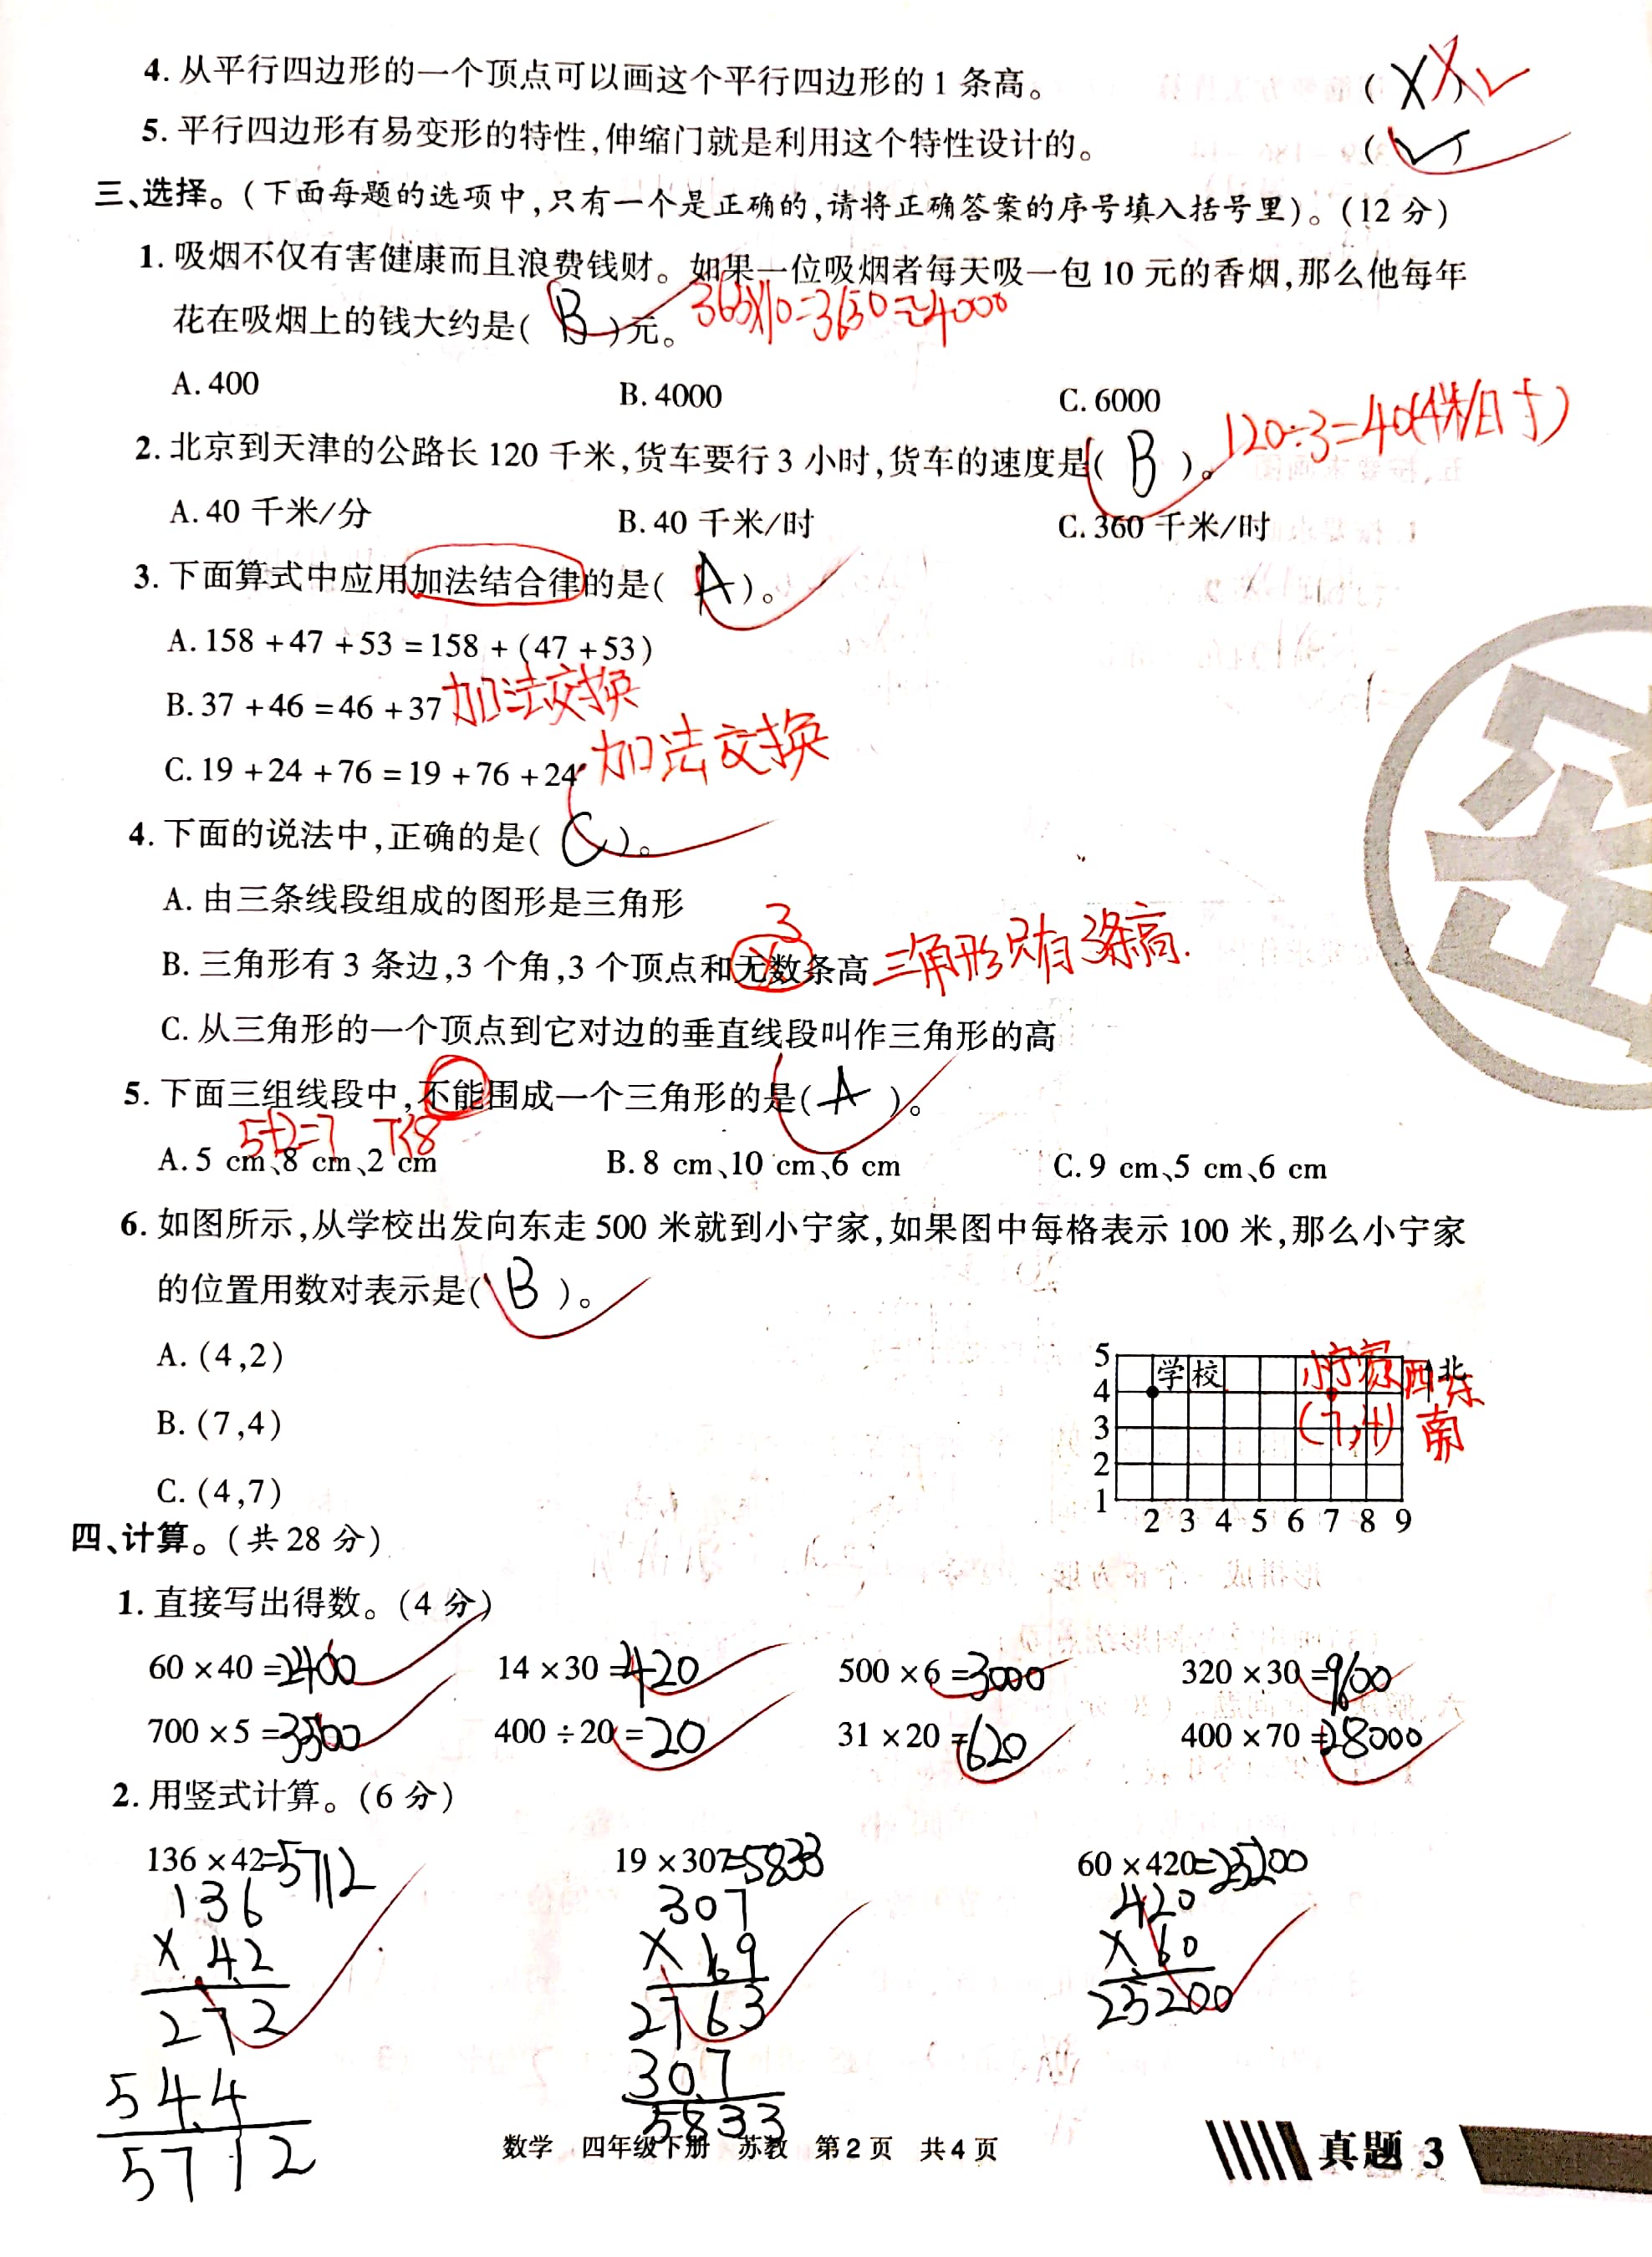 4. 从平行四边形的一个顶点可以画这个平行四边形的 1 条高。 ( × ) × ✓
5. 平行四边形有易变形的特性,伸缩门就是利用这个特性设计的。 ( ✓ )
三、选择。(下面每题的选项中,只有一个是正确的,请将正确答案的序号填入括号里)。(12 分)
1. 吸烟不仅有害健康而且浪费钱财。如果一位吸烟者每天吸一包 10 元的香烟,那么他每年
花在吸烟上的钱大约是( B )元。 365×10=3650≈4000
A. 400 B. 4000 C. 6000
120÷3=40(千米/时)
2. 北京到天津的公路长 120 千米,货车要行 3 小时,货车的速度是( B )。
A. 40 千米/分 B. 40 千米/时 C. 360 千米/时
3. 下面算式中应用加法结合律的是( A )。
A. 158 + 47 + 53 = 158 + (47 + 53)
B. 37 + 46 = 46 + 37 加法交换
C. 19 + 24 + 76 = 19 + 76 + 24 加法交换
4. 下面的说法中,正确的是( C )。
A. 由三条线段组成的图形是三角形
3
B. 三角形有 3 条边,3 个角,3 个顶点和无数条高 三角形只有3条高.
C. 从三角形的一个顶点到它对边的垂直线段叫作三角形的高
5. 下面三组线段中,不能围成一个三角形的是( A )。
5+2=7 7<8
A. 5 cm、8 cm、2 cm B. 8 cm、10 cm、6 cm C. 9 cm、5 cm、6 cm
6. 如图所示,从学校出发向东走 500 米就到小宁家,如果图中每格表示 100 米,那么小宁家
的位置用数对表示是( B )。
A. (4,2)
B. (7,4)
C. (4,7)
5 学校 小宁家 北
4 西 东
3 (7,4) 南
2
1
2 3 4 5 6 7 8 9
四、计算。(共 28 分)
1. 直接写出得数。(4 分)
60 × 40 =2400 14 × 30 =420 500 × 6 =3000 320 × 30 =9600
700 × 5 =3500 400 ÷ 20 =20 31 × 20 =620 400 × 70 =28000
2. 用竖式计算。(6 分)
136 × 42=5712 19 × 307=5833 60 × 420=25200
136 307 420
× 42 × 19 × 60
272 2763 25200
544 307
5712 5833
数学 四年级下册 苏教 第 2 页 共 4 页
真题 3